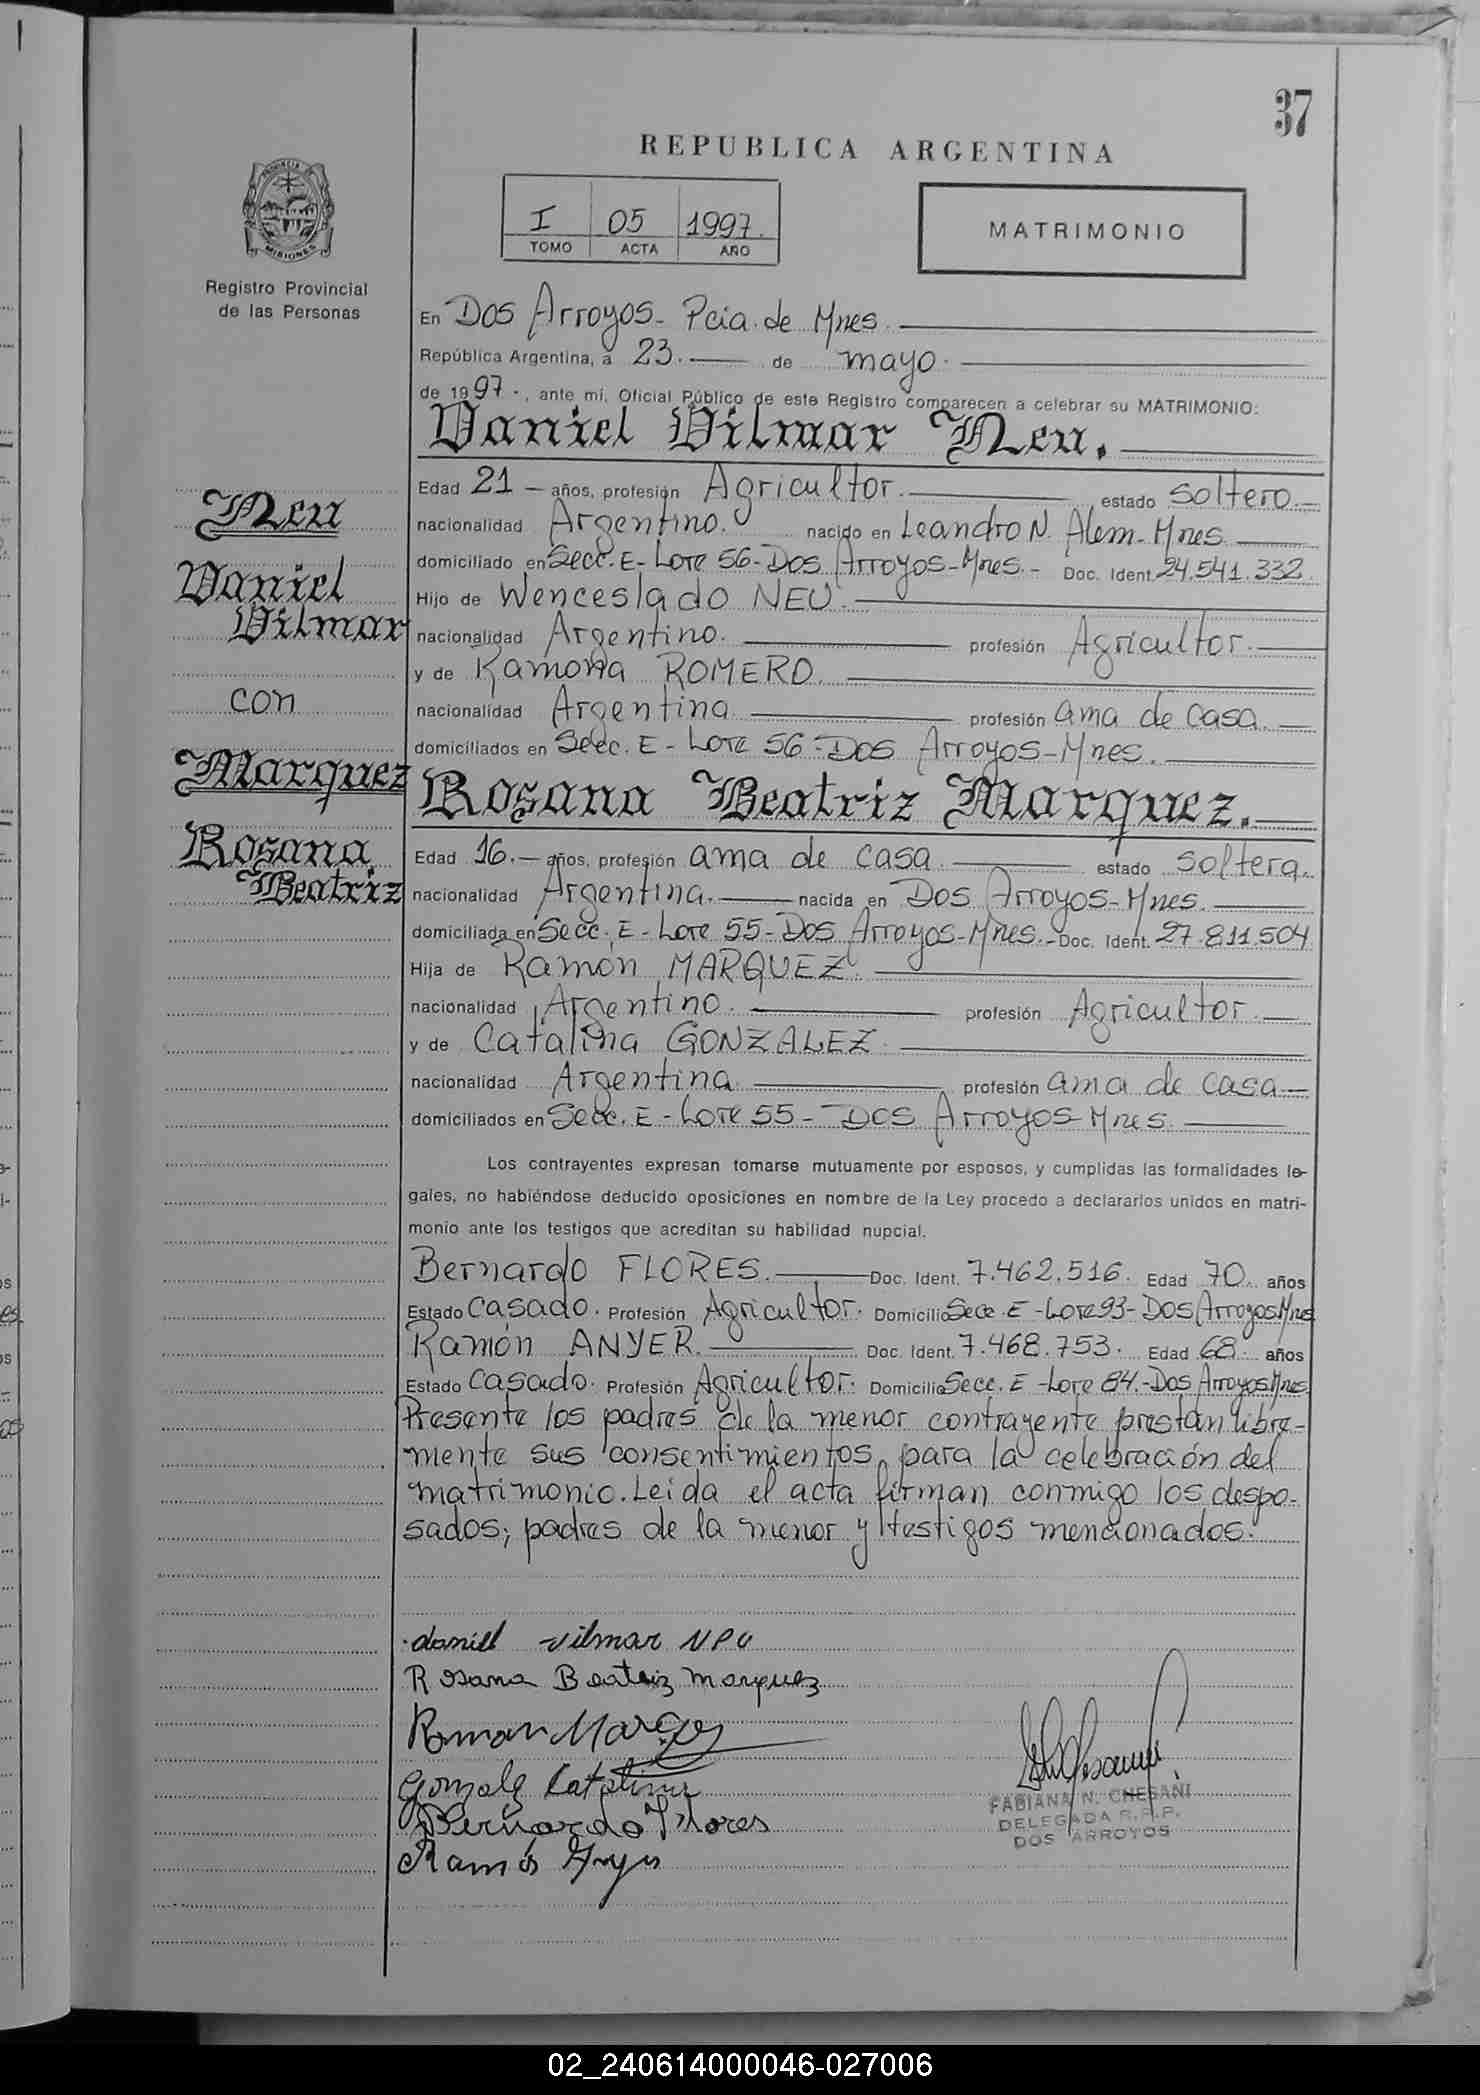 37
REPUBLICA ARGENTINA
I 05 1997.
TOMO ACTA AÑO
MATRIMONIO
PROVINCIA
MISIONES
Registro Provincial
de las Personas
En Dos Arroyos - Pcia. de Mnes.
República Argentina, a 23. de mayo.
de 1997., ante mí, Oficial Público de este Registro comparecen a celebrar su MATRIMONIO:
Daniel Vilmar Neu.
Edad 21 años, profesión Agricultor. estado soltero.
nacionalidad Argentino. nacido en Leandro N. Alem - Mnes.
domiciliado en Secc. E - Lote 56 - Dos Arroyos - Mnes. - Doc. Ident. 24.541.332.
Hijo de Wenceslado NEU.
nacionalidad Argentino. profesión Agricultor.
y de Ramona ROMERO.
nacionalidad Argentina profesión ama de casa.
domiciliados en Secc. E - Lote 56 - Dos Arroyos - Mnes.
Rosana Beatriz Marquez.
Edad 16. años, profesión ama de casa. estado soltera.
nacionalidad Argentina. nacida en Dos Arroyos - Mnes.
domiciliada en Secc. E - Lote 55 - Dos Arroyos - Mnes. - Doc. Ident. 27.811.504
Hija de Ramón MARQUEZ.
nacionalidad Argentino. profesión Agricultor.
y de Catalina GONZALEZ.
nacionalidad Argentina. profesión ama de casa
domiciliados en Secc. E - Lote 55 - Dos Arroyos - Mnes.
Neu
Daniel
Vilmar
con
Marquez
Rosana
Beatriz
Los contrayentes expresan tomarse mutuamente por esposos, y cumplidas las formalidades le-
gales, no habiéndose deducido oposiciones en nombre de la Ley procedo a declararlos unidos en matri-
monio ante los testigos que acreditan su habilidad nupcial.
Bernardo FLORES. Doc. Ident. 7.462.516. Edad 70. años
Estado Casado. Profesión Agricultor. Domicilio Secc. E - Lote 93 - Dos Arroyos Mnes
Ramón ANYER. Doc. Ident. 7.468.753. Edad 68. años
Estado Casado. Profesión Agricultor. Domicilio Secc. E - Lote 84. - Dos Arroyos Mnes.
Presente los padres de la menor contrayente prestan libre-
mente sus consentimientos, para la celebración del
matrimonio. Leida el acta firman conmigo los despo-
sados; padres de la menor y testigos mencionados.
daniel vilmar neu
Rosana Beatriz Marquez
Gonzale Catalina
Bernardo Flores
FABIANA N. CHESANI
DELEGADA R.P.P.
DOS ARROYOS
02_240614000046-027006